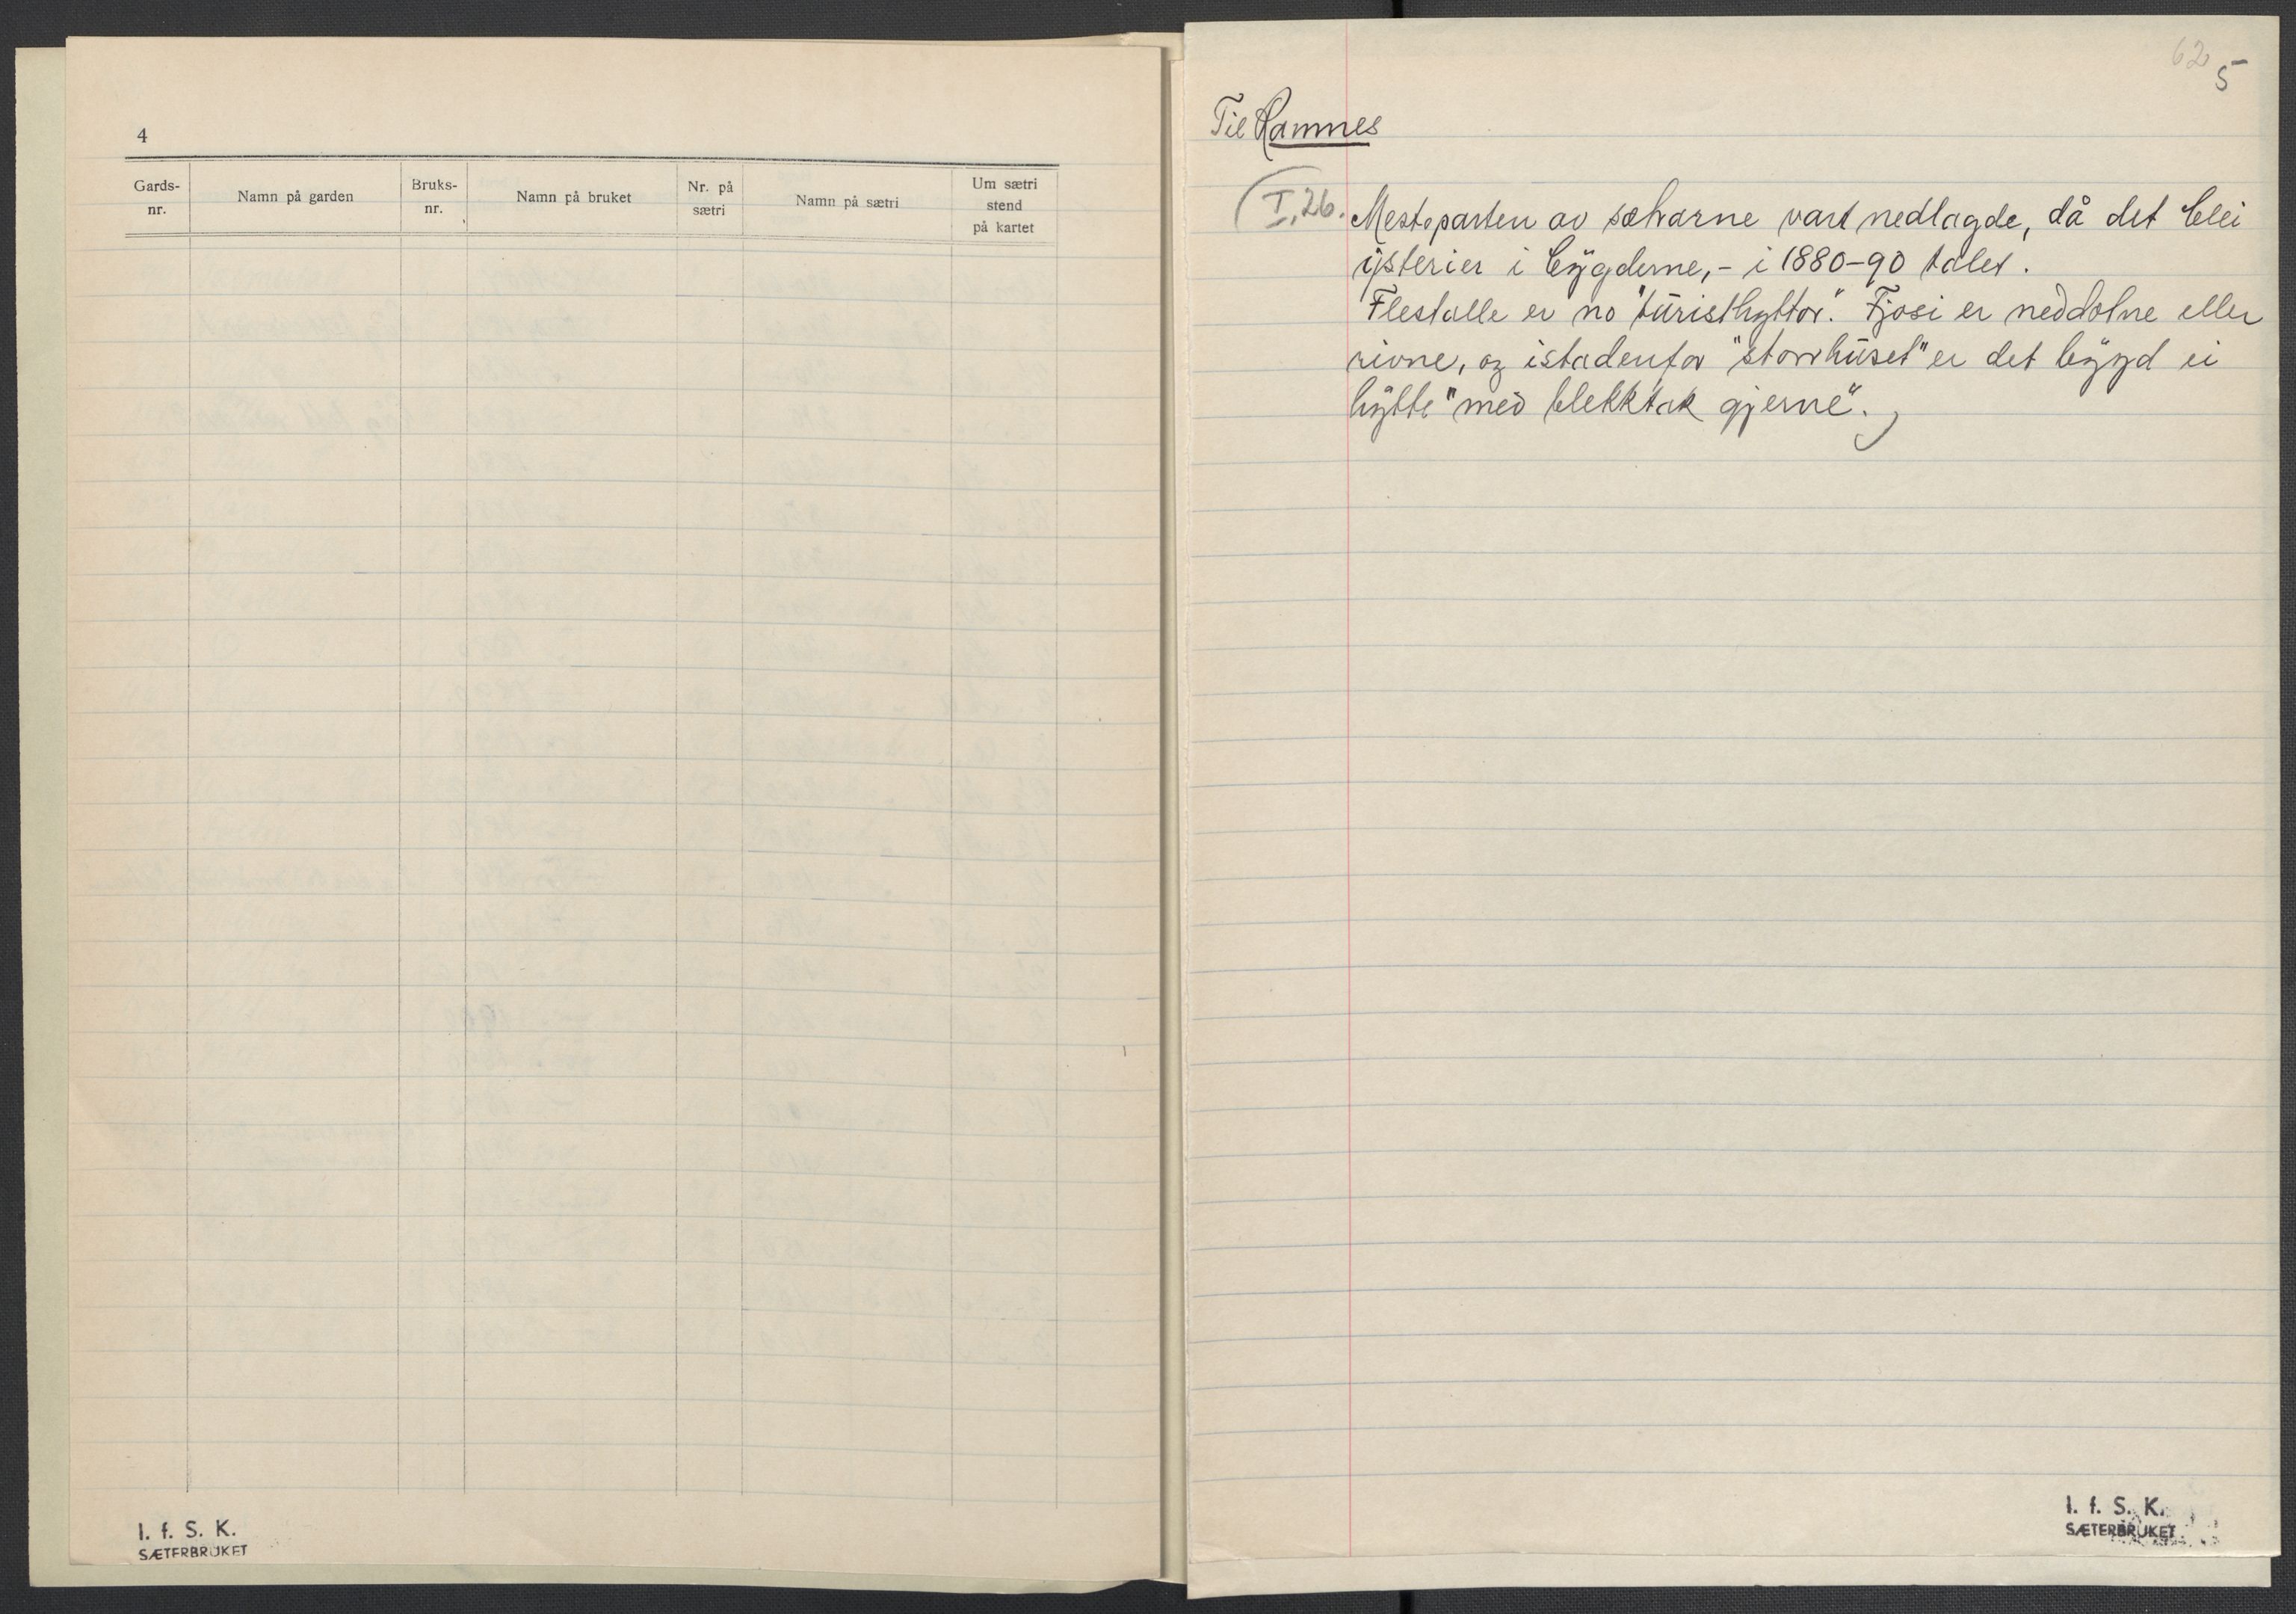 4
Gards-
nr.
Namn på garden
Bruks-
nr.
Namn på bruket
Nr. på
sætri
Namn på sætri
Um sætri
stend
på kartet
I. f. S. K.
SÆTERBRUKET
62
5
Til Ramnes
(I, 26. Mesteparten av sætrarne vart nedlagde, då det blei
ysterier i bygderne, - i 1880-90 talet.
Flestalle er no "turisthyttor". Fjosi er neddotne eller
rivne, og istadenfor "storrhuset" er det bygd ei
hytte "med blekktak gjerne".)
I. f. S. K.
SÆTERBRUKET